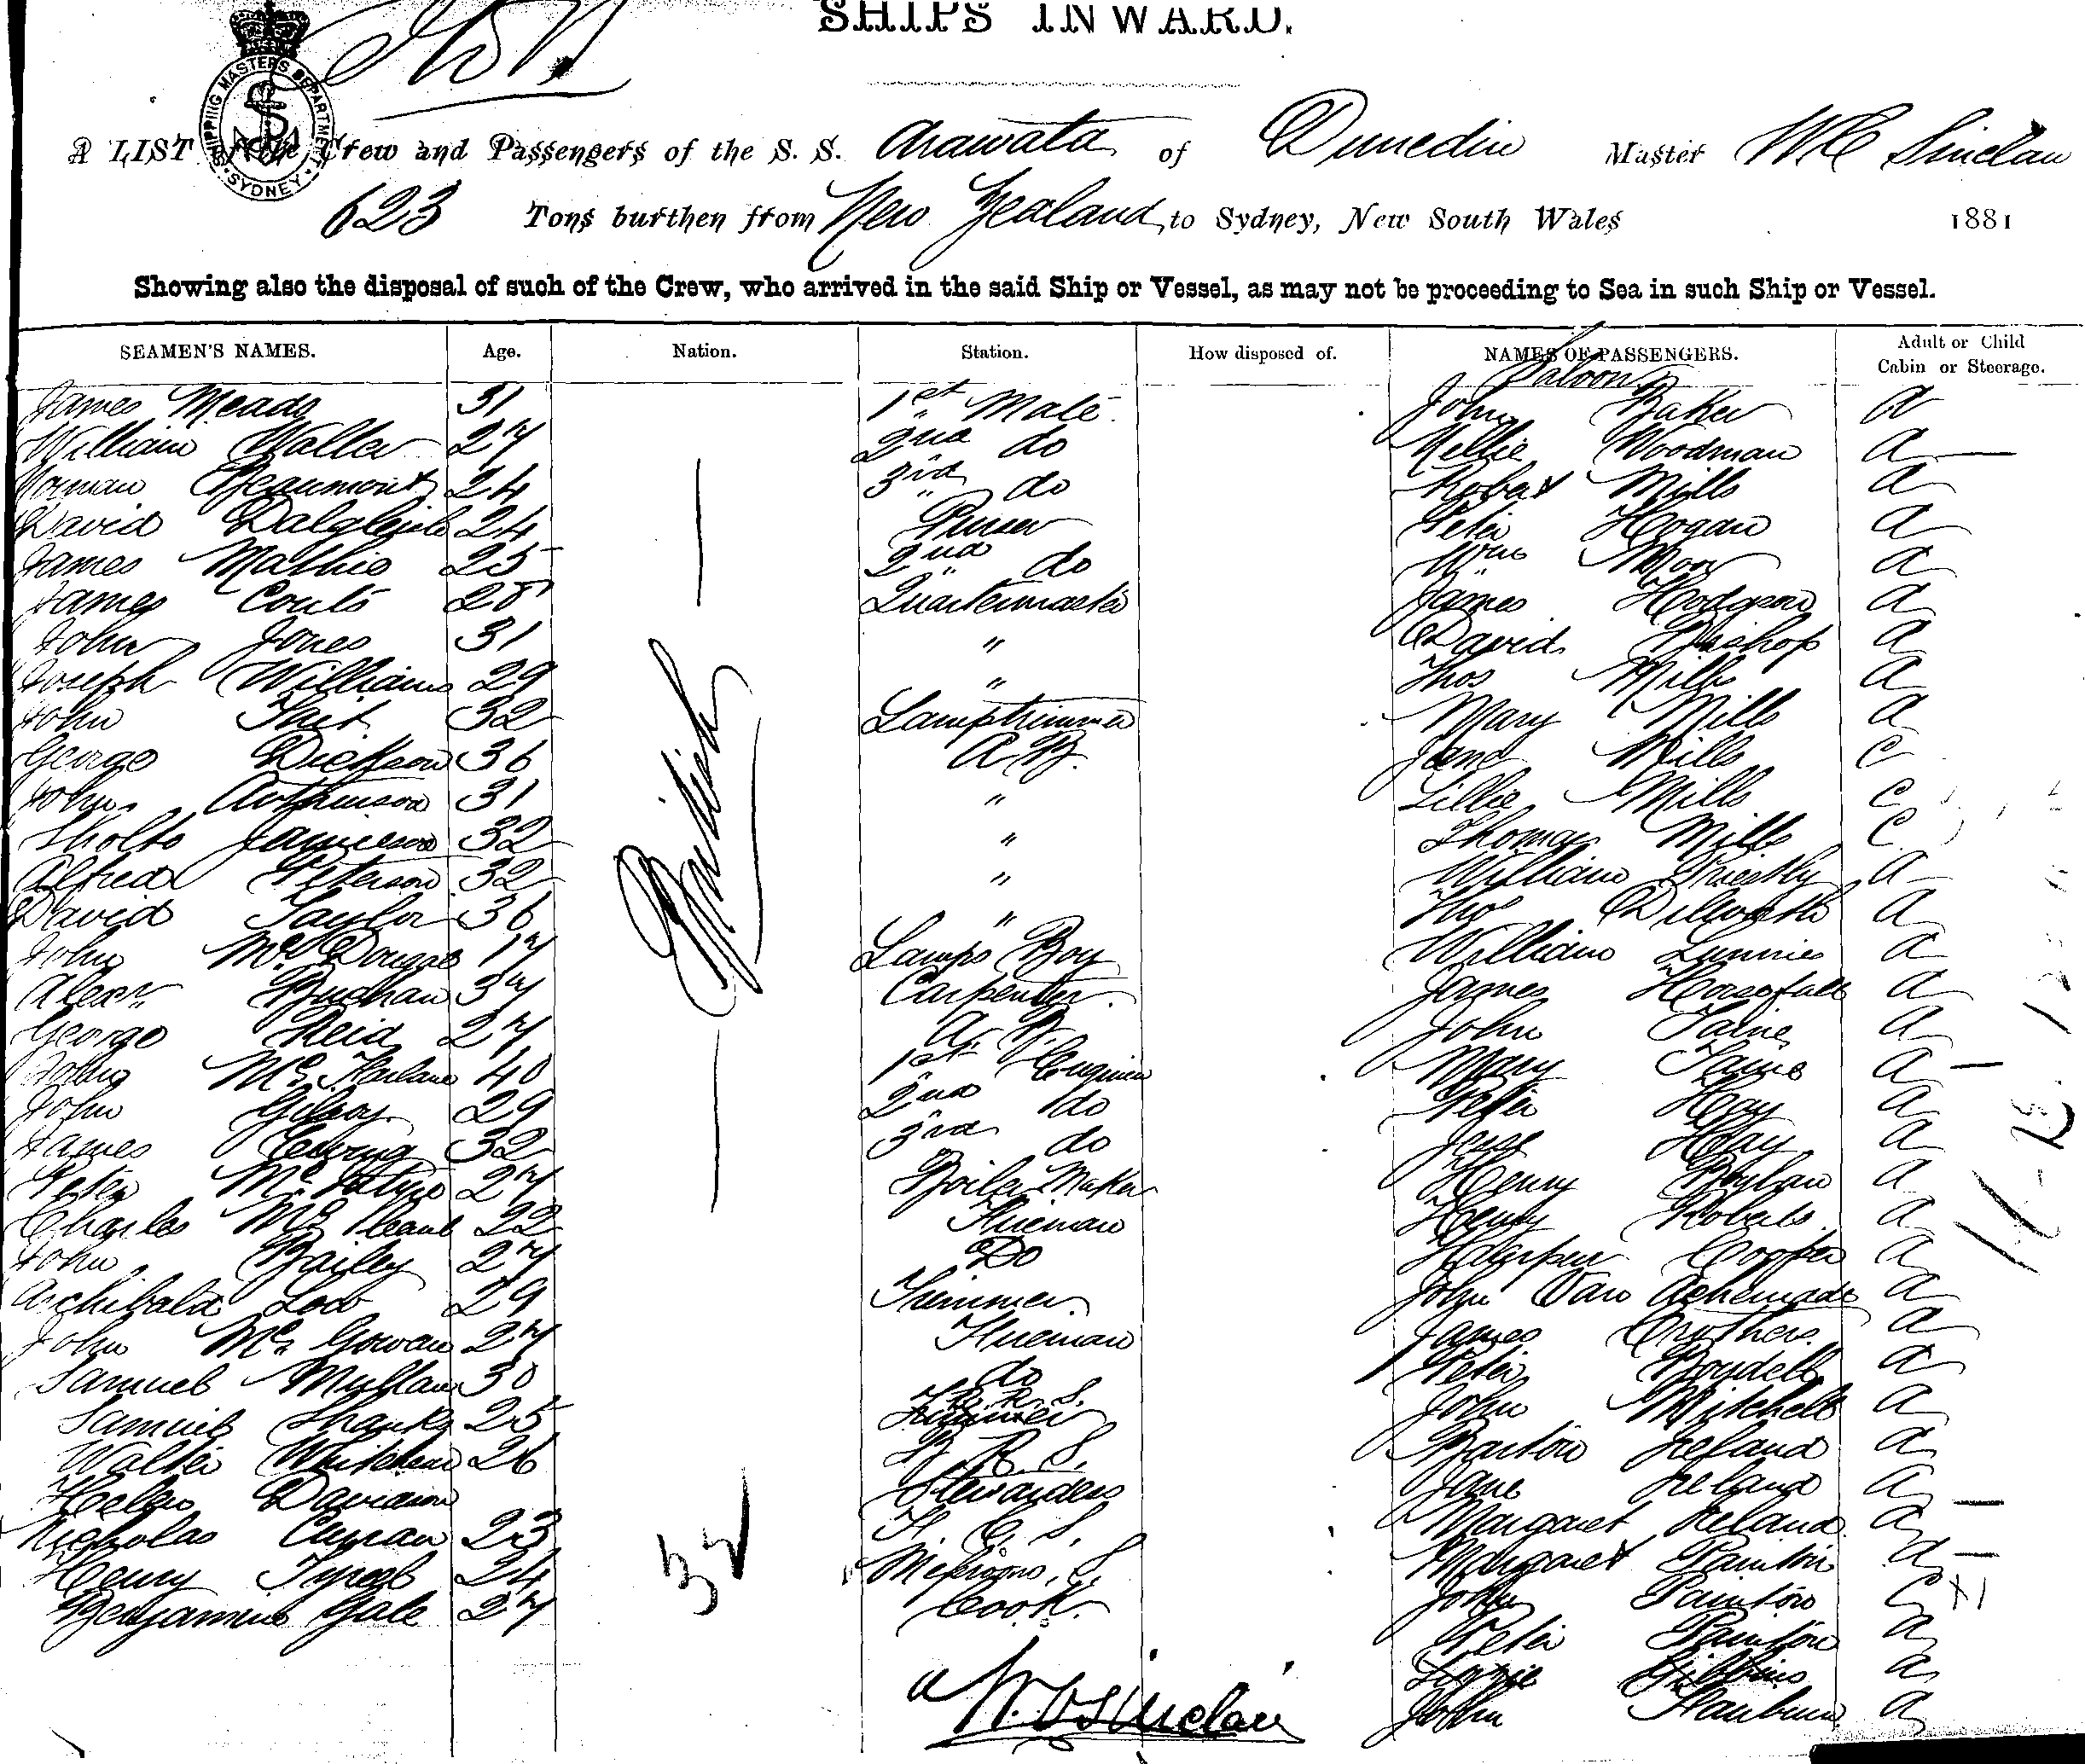 SHIPS INWARD.
SHIPPING MASTERS DEPARTMENT SYDNEY
A LIST of the Crew and Passengers of the S. S. Arawata of Dunedin Master W C Sinclair
623 Tons burthen from New Zealand to Sydney, New South Wales 1881
Showing also the disposal of such of the Crew, who arrived in the said Ship or Vessel, as may not be proceeding to Sea in such Ship or Vessel.
SEAMEN'S NAMES. Age. Nation. Station. How disposed of. NAMES OF PASSENGERS. Adult or Child Cabin or Steerage.
Saloon
James Meads 31 1st Mate John Baker a
William Waller 27 2nd do Nellie Woodman a
Norman Beaumont 24 3rd do Robert Mills a
David Dalgleish 24 Purser Peter Hogan a
James Mathie 25 2nd do Wm a
James Couts 28 Quartermaster James Hodgson a
John Jones 31 " David Bishop a
Joseph Williams 29 " Thos Mills a
John Tait 32 Lamptrimmer Mary Mills a
George Dickson 36 A B. Jane Mills C
John 31 " Lillie Mills C
Sholto Jamieson 32 " Thomas Mills C
Alfred Peterson 32 " William Priestly a
David Taylor 36 " Thos Dilworth a
John McDougal 17 Lamps Boy William a
Alexr Buchan 37 Carpenter James Horsfall a
George Reid 27 A. B. John Paine a
John McFarlane 40 1st Engineer Mary a
John Gilroy 29 2nd do Peter Hay a
James Ewing 32 3rd do Jessy Hay a
Peter McIntyre 27 Boiler Maker Henry Boylan a
Charles Mc 22 Fireman Henry Roberts a
John Bailey 27 Do Cooper a
Archibald Low 29 Trimmer John Van a
John McGowan 27 Fireman James Crothers a
Samuel Mullan 30 do Peter Boydell a
Samuel Shanks 25 F. R. S. John Mitchell a
Walter Whitehead 26 B. R. S. Barton Ireland a
Helen Davidson Stewardess Jane Ireland a
Nicholas Curran 23 F. C. S. Margaret Ireland a
Henry 24 Messrooms, S. Margaret Painton a
Benjamin Gale 27 Cook. John Painton C
Peter Painton a
a
John a
British
32
W. C. Sinclair